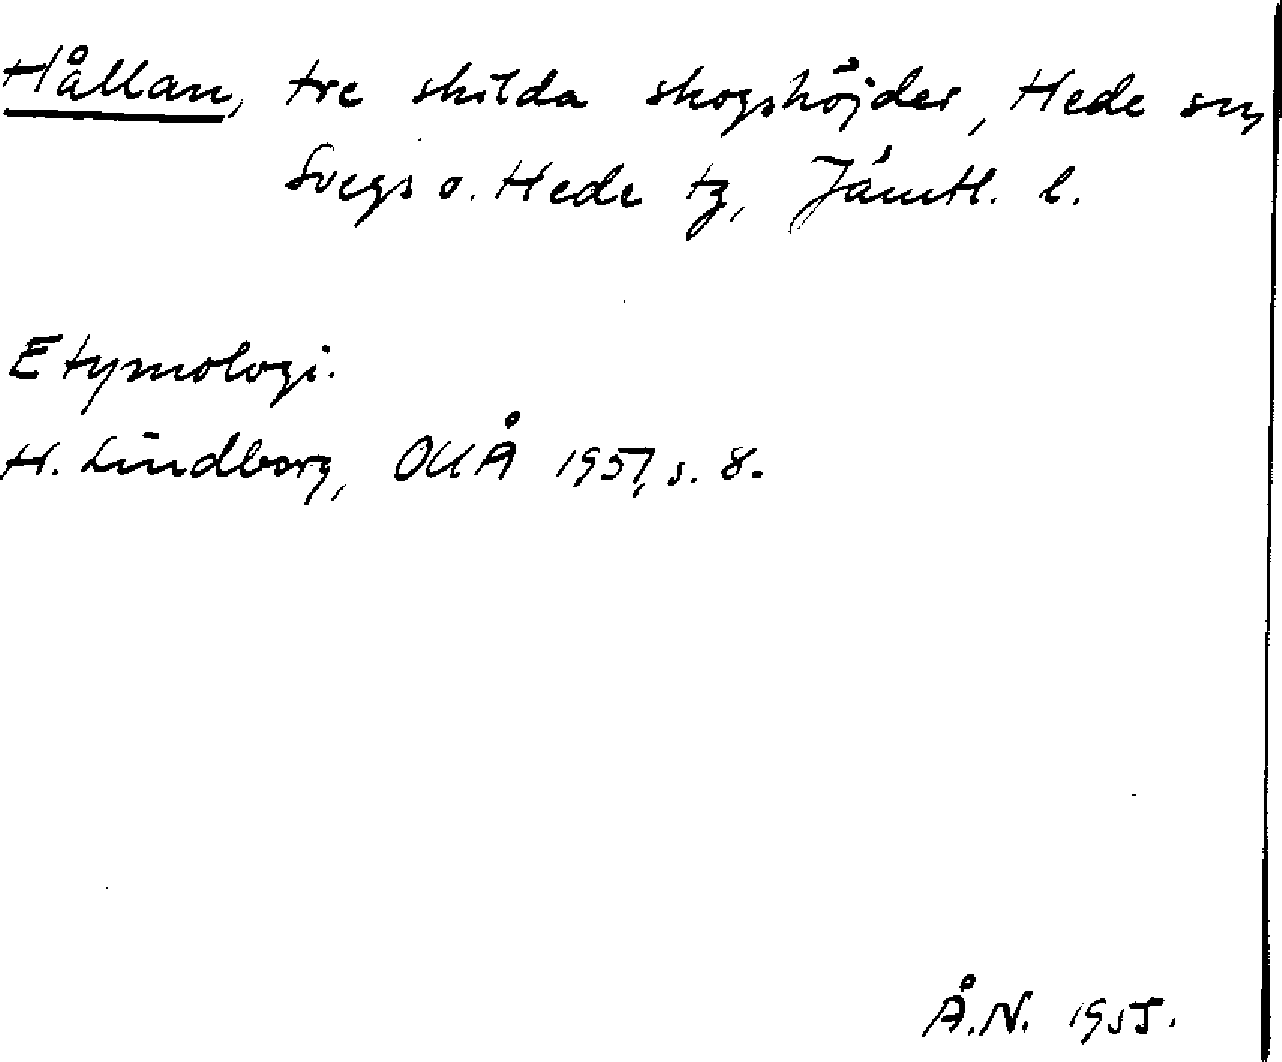 Hållan, tre skilda skogshöjder, Hede sn,
Svegs o. Hede tg, Jämtl. l.
Etymologi.
H. Lindborg, OUÅ 1951, s. 8.
Å.N. 1955.